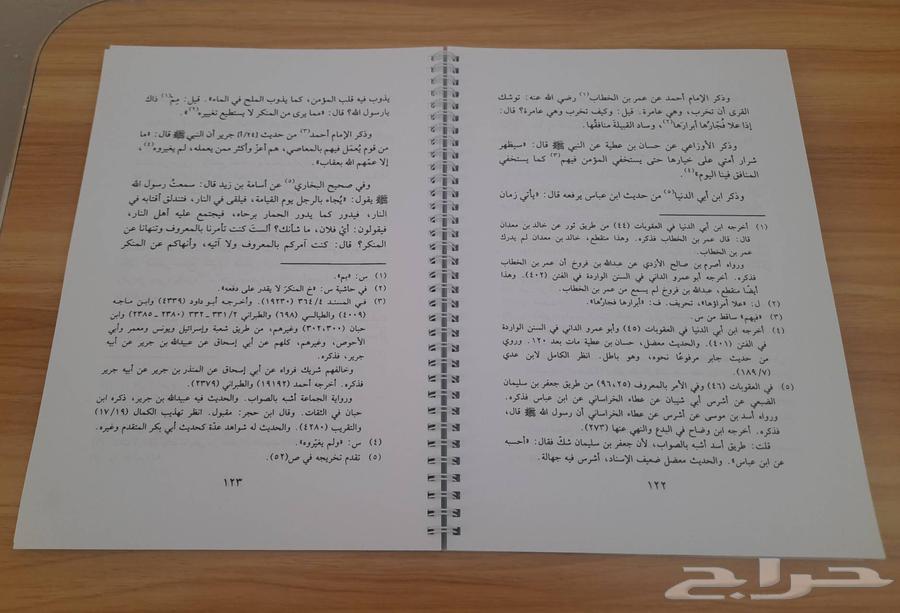 وذكر الإمام أحمد عن عمر بن الخطاب(١) رضي الله عنه: توشك
القرى أن تخرب، وهي عامرة. قيل: وكيف تخرب وهي عامرة؟ قال:
إذا علا فُجّارُها أبرارَها(٢)، وساد القبيلةَ منافقُها.
وذكر الأوزاعي عن حسان بن عطية عن النبي ﷺ قال: «سيظهر
شرار أمتي على خيارها حتى يستخفي المؤمن فيهم(٣) كما يستخفي
المنافق فينا اليوم»(٤).
وذكر ابن أبي الدنيا(٥) من حديث ابن عباس يرفعه قال: «يأتي زمان
(١) أخرجه ابن أبي الدنيا في العقوبات (٤٤) من طريق ثور عن خالد بن معدان
قال: قال عمر بن الخطاب فذكره. وهذا منقطع، خالد بن معدان لم يدرك
عمر بن الخطاب.
ورواه أصرم بن صالح الأزدي عن عبدالله بن فروخ أن عمر بن الخطاب
فذكره. أخرجه أبو عمرو الداني في السنن الواردة في الفتن (٤٠٢). وهذا
أيضًا منقطع، عبدالله بن فروخ لم يسمع من عمر بن الخطاب.
(٢) ل: «علا أمراؤها»، تحريف. ف: «أبرارها فجارُها».
(٣) «فيهم» ساقط من س.
(٤) أخرجه ابن أبي الدنيا في العقوبات (٤٥) وأبو عمرو الداني في السنن الواردة
في الفتن (٤٠١). والحديث معضل، حسان بن عطية مات بعد ١٢٠. وروي
من حديث جابر مرفوعًا نحوه، وهو باطل. انظر الكامل لابن عدي
(١٨٩/٧).
(٥) في العقوبات (٤٦) وفي الأمر بالمعروف (٩٦،٢٥) من طريق جعفر بن سليمان
الضبعي عن أشرس أبي شيبان عن عطاء الخراساني عن ابن عباس فذكره.
ورواه أسد بن موسى عن أشرس عن عطاء الخراساني أن رسول الله ﷺ قال،
فذكره. أخرجه ابن وضاح في البدع والنهي عنها (٢٧٣).
قلت: طريق أسد أشبه بالصواب، لأن جعفر بن سليمان شكّ فقال: «أحسبه
عن ابن عباس». والحديث معضل ضعيف الإسناد، أشرس فيه جهالة.
١٢٢
يذوب فيه قلب المؤمن، كما يذوب الملح في الماء». قيل: مِمَّ(١) ذاك
يارسول الله؟ قال: «مما يرى من المنكر لا يستطيع تغييره(٢)».
وذكر الإمام أحمد(٣) من حديث [٢٥/أ] جرير أن النبي ﷺ قال: «ما
من قوم يُعمَل فيهم بالمعاصي، هم أعزّ وأكثر ممن يعمله، لم يغيروه(٤)،
إلا عمّهم الله بعقاب».
وفي صحيح البخاري(٥) عن أسامة بن زيد قال: سمعتُ رسول الله
ﷺ يقول: «يُجاء بالرجل يوم القيامة، فيلقى في النار، فتندلق أقتابه في
النار، فيدور كما يدور الحمار برحاه، فيجتمع عليه أهل النار،
فيقولون: أيْ فلان، ما شأنك؟ ألستَ كنت تأمرنا بالمعروف وتنهانا عن
المنكر؟ قال: كنت آمركم بالمعروف ولا آتيه، وأنهاكم عن المنكر
(١) س: «بم».
(٢) في حاشية س: «خ المنكرَ لا يقدر على دفعه».
(٣) في المسند ٣٦٤/٤ (١٩٢٣٠). وأخرجه أبو داود (٤٣٣٩) وابن ماجه
(٤٠٠٩) والطيالسي (٦٩٨) والطبراني ٣٣١/٢ ـ ٣٣٢ (٢٣٨٠ ـ ٢٣٨٥) وابن
حبان (٣٠٢،٣٠٠) وغيرهم، من طريق شعبة وإسرائيل ويونس ومعمر وأبي
الأحوص، وغيرهم، كلهم عن أبي إسحاق عن عبيدالله بن جرير عن أبيه
جرير، فذكره.
وخالفهم شريك فرواه عن أبي إسحاق عن المنذر بن جرير عن أبيه جرير
فذكره. أخرجه أحمد (١٩١٩٢) والطبراني (٢٣٧٩).
ورواية الجماعة أشبه بالصواب. والحديث فيه عبيدالله بن جرير، ذكره ابن
حبان في الثقات. وقال ابن حجر: مقبول. انظر تهذيب الكمال (١٧/١٩)
والتقريب (٤٢٨٠). والحديث له شواهد عدّة كحديث أبي بكر المتقدم وغيره.
(٤) س: «ولم يغيّروه».
(٥) تقدم تخريجه في ص(٥٢).
١٢٣
حراج